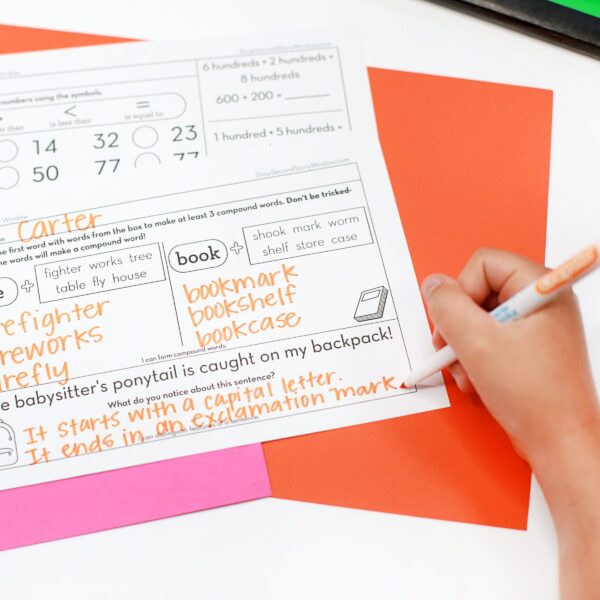 Window
ShopSecondStoryWindow.com
numbers using the symbols.
< =
er than is less than is equal to
14 32 23
50 77 77
6 hundreds + 2 hundreds =
8 hundreds
600 + 200 =
1 hundred + 5 hundreds =
Window
ShopSecondStoryWindow.com
Carter
he first word with words from the box to make at least 3 compound words. Don't be tricked-
the words will make a compound word!
e + fighter works tree
table fly house
refighter
reworks
refly
book + shook mark worm
shelf store case
bookmark
bookshelf
bookcase
I can form compound words.
e babysitter's ponytail is caught on my backpack!
What do you notice about this sentence?
It starts with a capital letter.
It ends in an exclamation mark
I can distinguish features of a sentence.